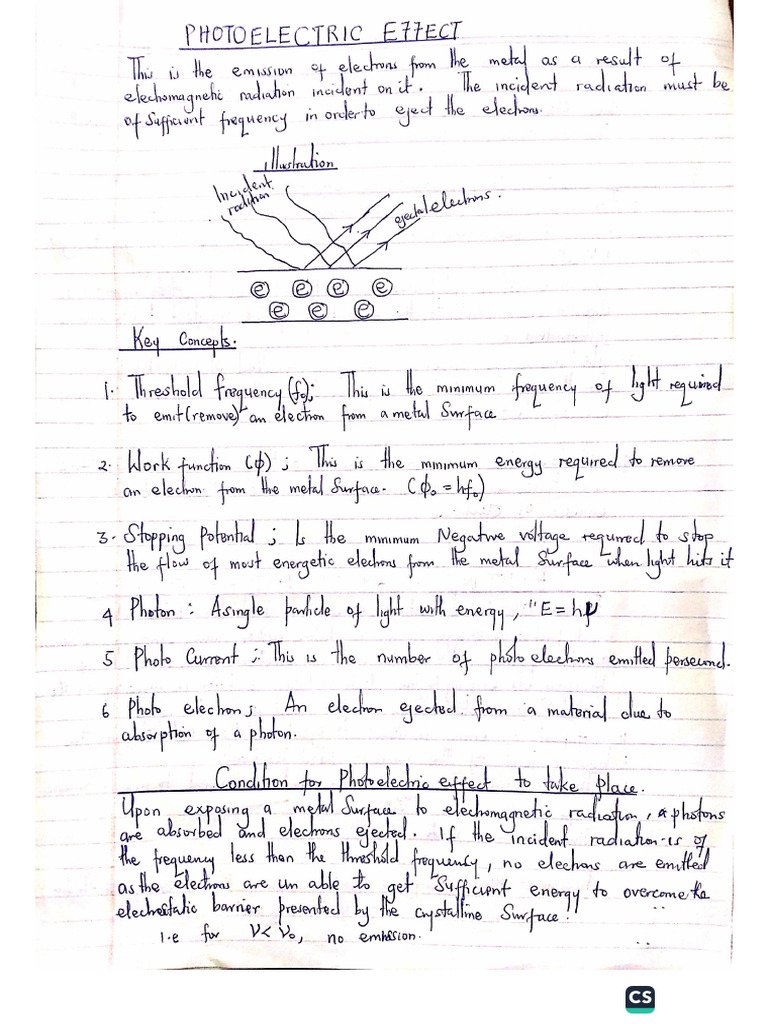 PHOTOELECTRIC EFFECT
This is the emission of electrons from the metal as a result of
electromagnetic radiation incident on it. The incident radiation must be
of Sufficient frequency in order to eject the electrons.
illustration
Incident
radition
ejected electrons.
e e e e
e e e
Key Concepts.
1. Threshold frequency (f₀); This is the minimum frequency of light required
to emit (remove) an electron from a metal Surface
2. Work function (ϕ) ; This is the minimum energy required to remove
an electron from the metal Surface. (ϕ₀ = hf₀)
3. Stopping Potential ; Is the minimum Negative voltage required to stop
the flow of most energetic electrons from the metal Surface when light hits it
4 Photon : A single particle of light with energy, "E = hν
5 Photo Current ;. This is the number of photo electrons emitted persecond.
6 Photo electron; An electron ejected from a material due to
absorption of a photon.
Condition for Photoelectric effect to take place.
Upon exposing a metal Surface to electromagnetic radiation, photons
are absorbed and electrons ejected. If the incident radiation is of
the frequency less than the threshold frequency, no electrons are emitted
as the electrons are un able to get Sufficient energy to overcome the
electrostatic barrier presented by the crystalline Surface.
i.e for ν < ν₀, no emission.
CS